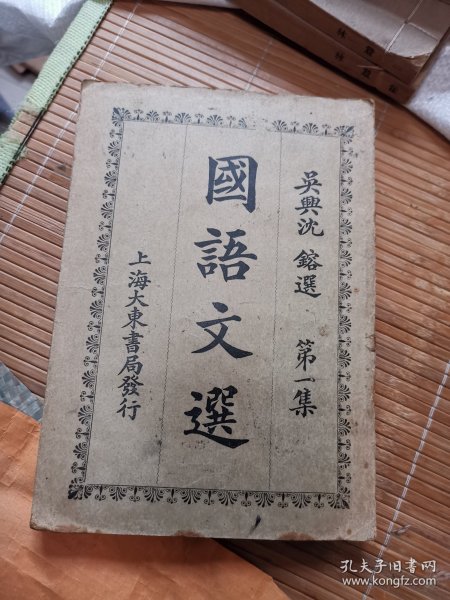 吳興沈鎔選 第一集
國語文選
上海大東書局發行
孔夫子旧书网
www.kongfz.com